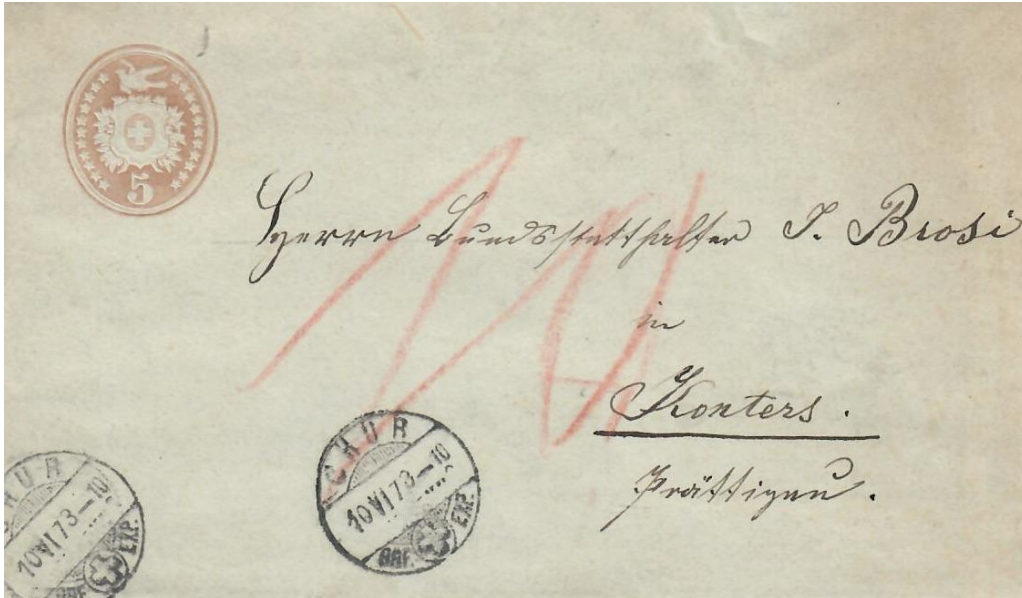 5
Herrn Bundsstatthalter J. Brosi
in
Konters.
Prättigau.
10
CHUR
10 VI 73–10
BRF. EXP.
CHUR
10 VI 73–10
BRF. EXP.